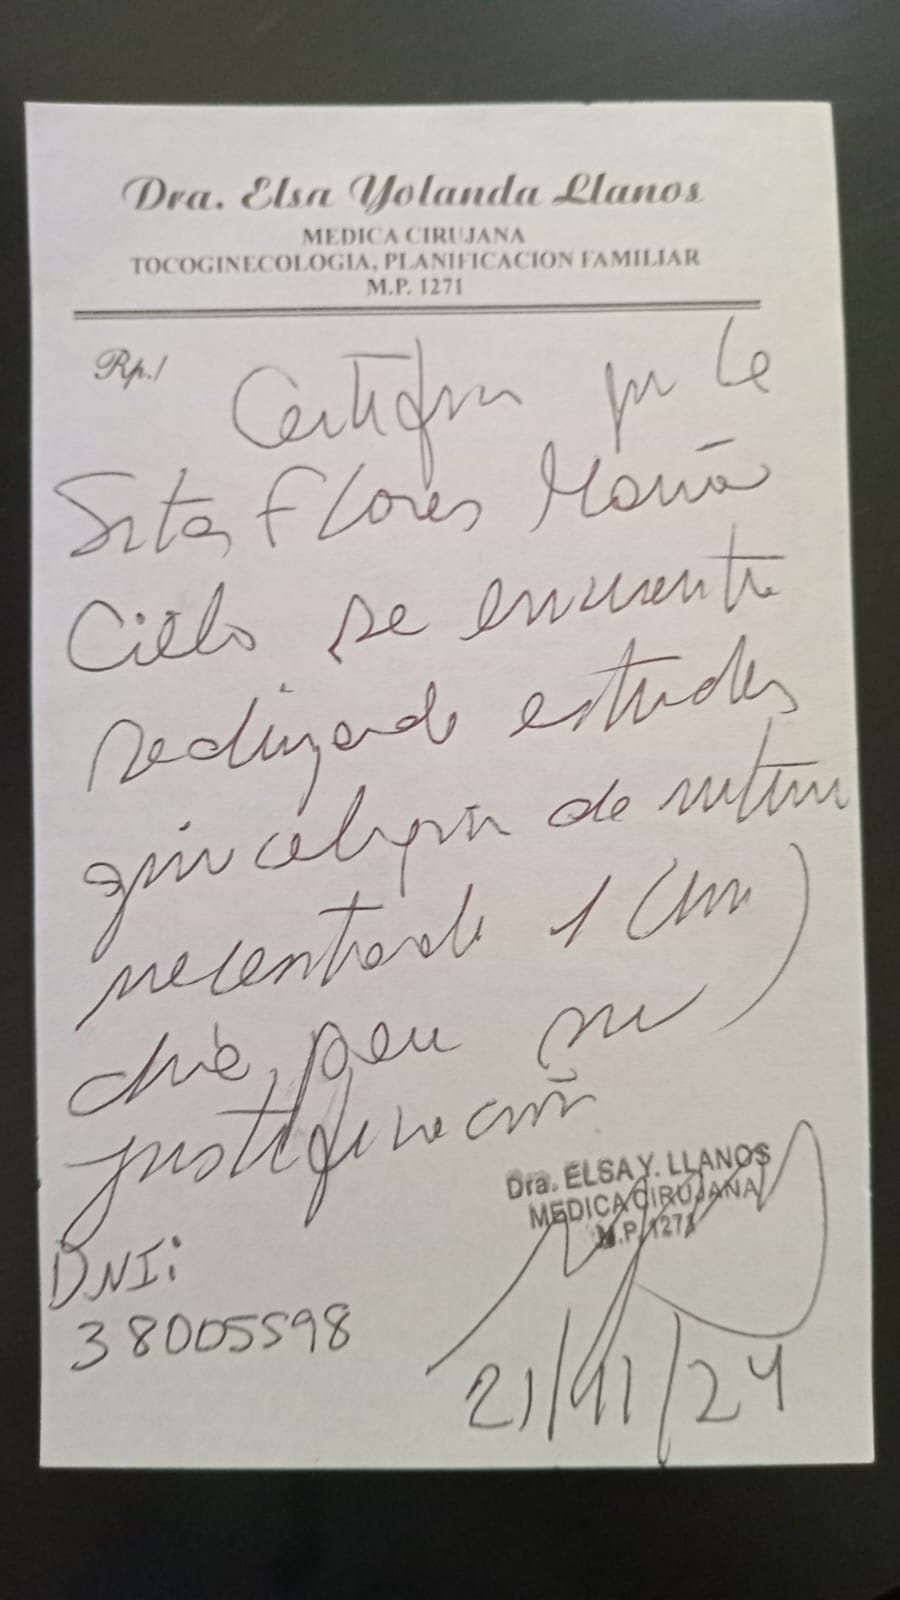 Dra. Elsa Yolanda Llanos
MEDICA CIRUJANA
TOCOGINECOLOGIA, PLANIFICACION FAMILIAR
M.P. 1271
Rp./
Certifico que la
Srta, Flores María
Cielo se encuentra
realizando estudios
ginecológicos de rutina
necesitando 1 (un)
día, para su
justificación
Dra. ELSA Y. LLANOS
MEDICA CIRUJANA
M.P. 1271
DNI:
38005598
21/11/24